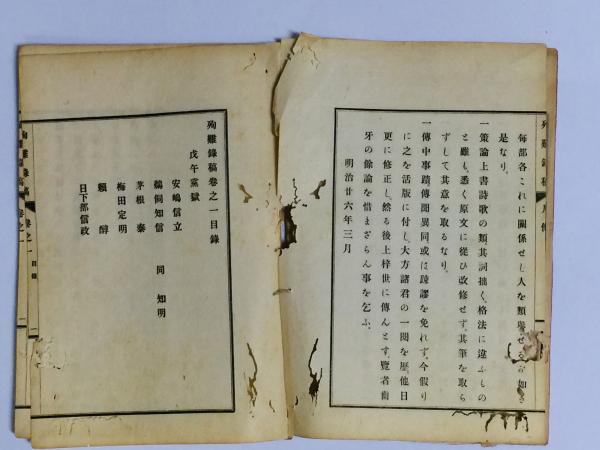 毎部各これに關係せし人を類
是なり。
一策論上書詩歌の類其詞拙く、格法に違ふもの
と雖も、悉く原文に從ひ改修せず、其筆を取ら
ずして其意を取るなり。
一傳中事蹟傳聞異同或は踈謬を免れず、今假り
に之を活版に付し、大方諸君の一閲を歷、他日
更に修正し、然る後上梓世に傳んとす、覽者齒
牙の餘論を惜まざらん事を乞ふ。
明治廿六年三月
殉難錄稿卷之一目錄
戊午黨獄
安嶋信立
鵜飼知信 同知明
茅根泰
梅田定明
賴醇
日下部信政
殉難錄稿 卷之一 目錄 一